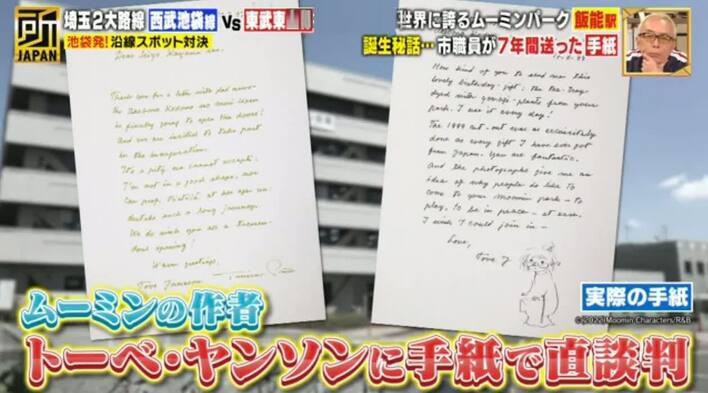 所JAPAN
埼玉2大路線 西武池袋線 Vs 東武東
池袋発!沿線スポット対決
世界に誇るムーミンパーク 飯能駅
誕生秘話…市職員が7年間送った手紙
Dear
Thank you for a letter with
the
is finally going to open the doors!
And we are invited to take part
in the inauguration.
It's a pity we cannot accept:
I'm not in a good shape, nor
such a long journey.
We do wish you
opening!
Warm greetings,
Tove Jansson
How kind of you to send me this
lovely birthday-gift: the
dyed with plants from your
park. I use it every day!
The 1999 cut-out
done as every gift I have ever got
from Japan. You are fantastic.
And the photographs give me an
idea of why people do like to
come to your Moomin park – to
play, to be in peace – at ease.
I wish I could join in –
Love,
Tove J
実際の手紙
©2022 Moomin Characters/R&B
ムーミンの作者
トーベ・ヤンソンに手紙で直談判